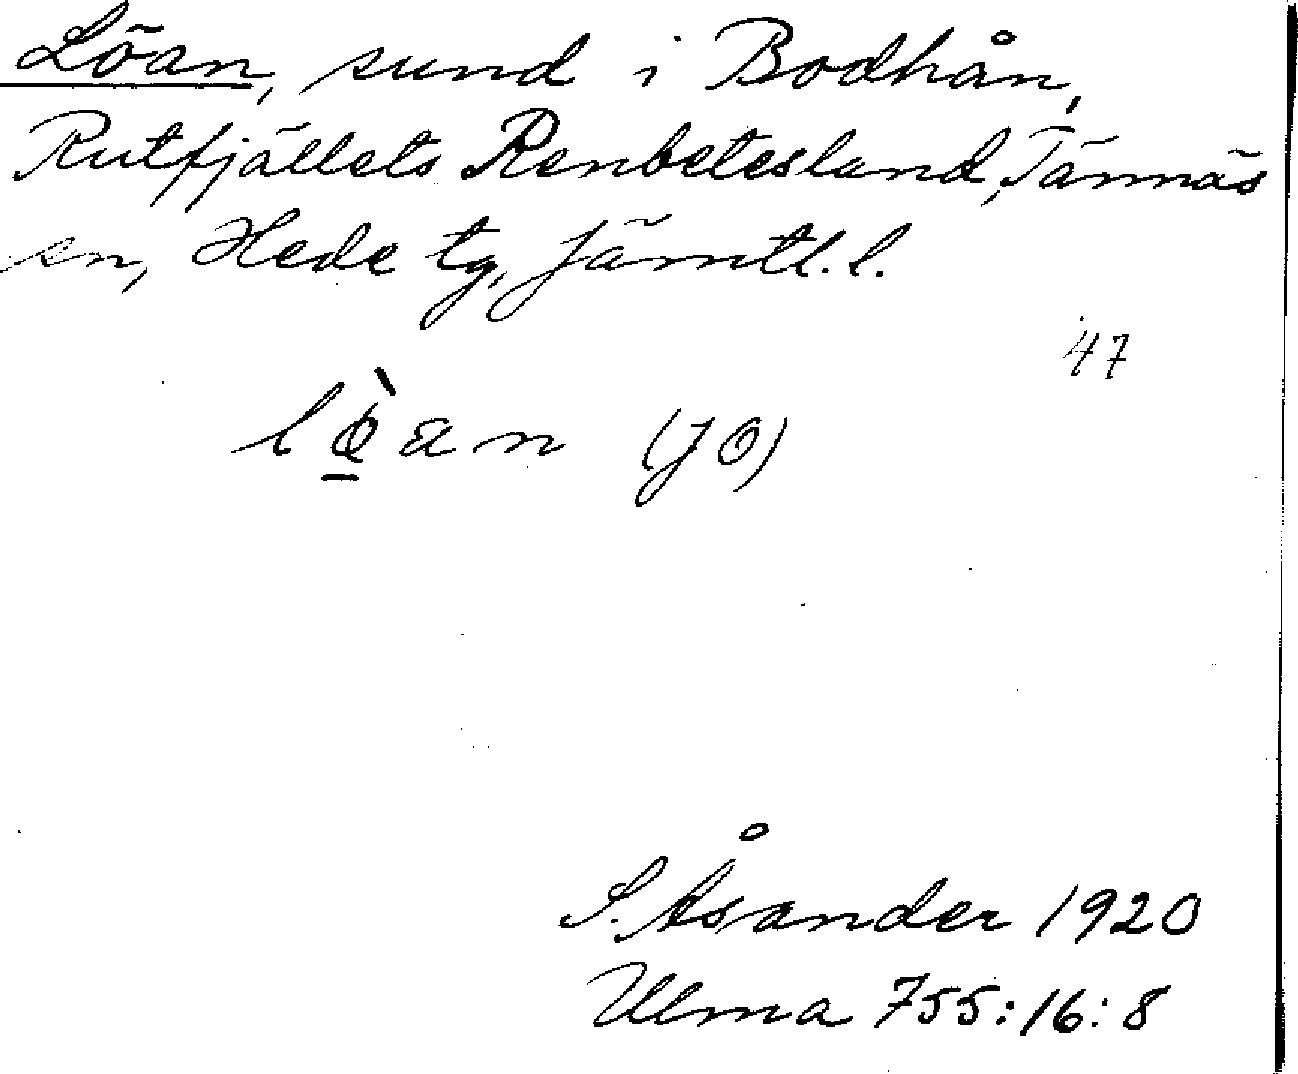 Löan, sund i Bodhån,
Rutfjällets Renbetesland, Tännäs
sn, Hede tg, Jämtl. l.
47
lø̱̀an (JÖ)
S. Åsander 1920
Ulma 755:16:8